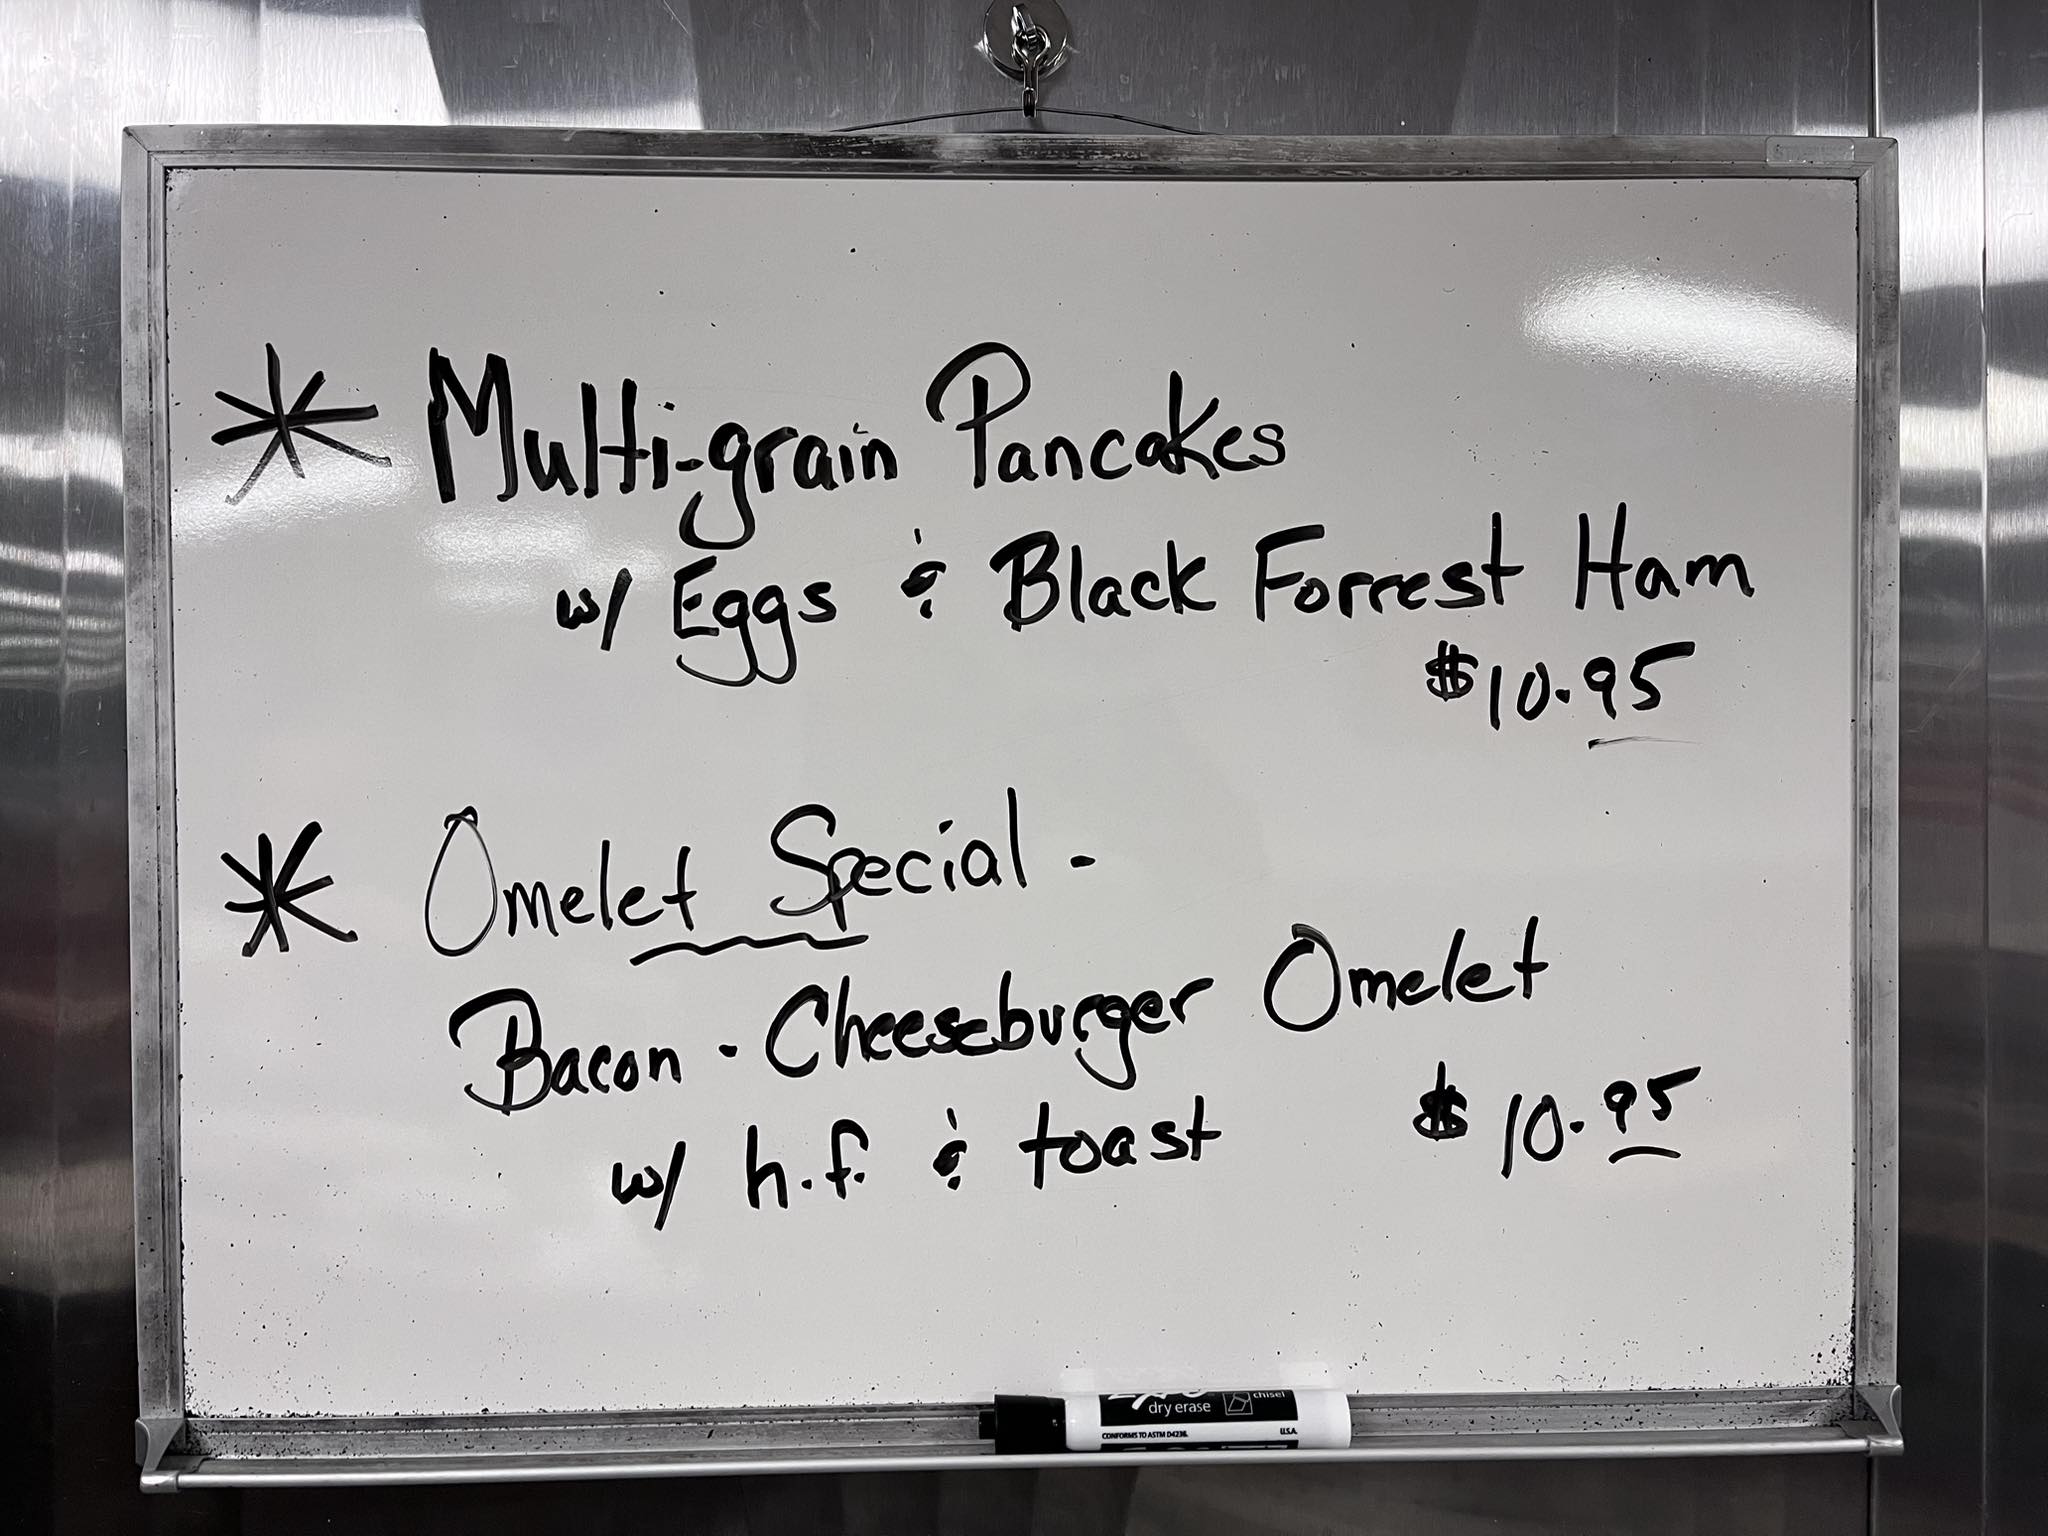 * Multi-grain Pancakes
w/ Eggs & Black Forrest Ham
$10.95
* Omelet Special -
Bacon - Cheeseburger Omelet
w/ h.f. & toast $10.95
chisel
dry erase
CONFORMS TO ASTM D4236. U.S.A.